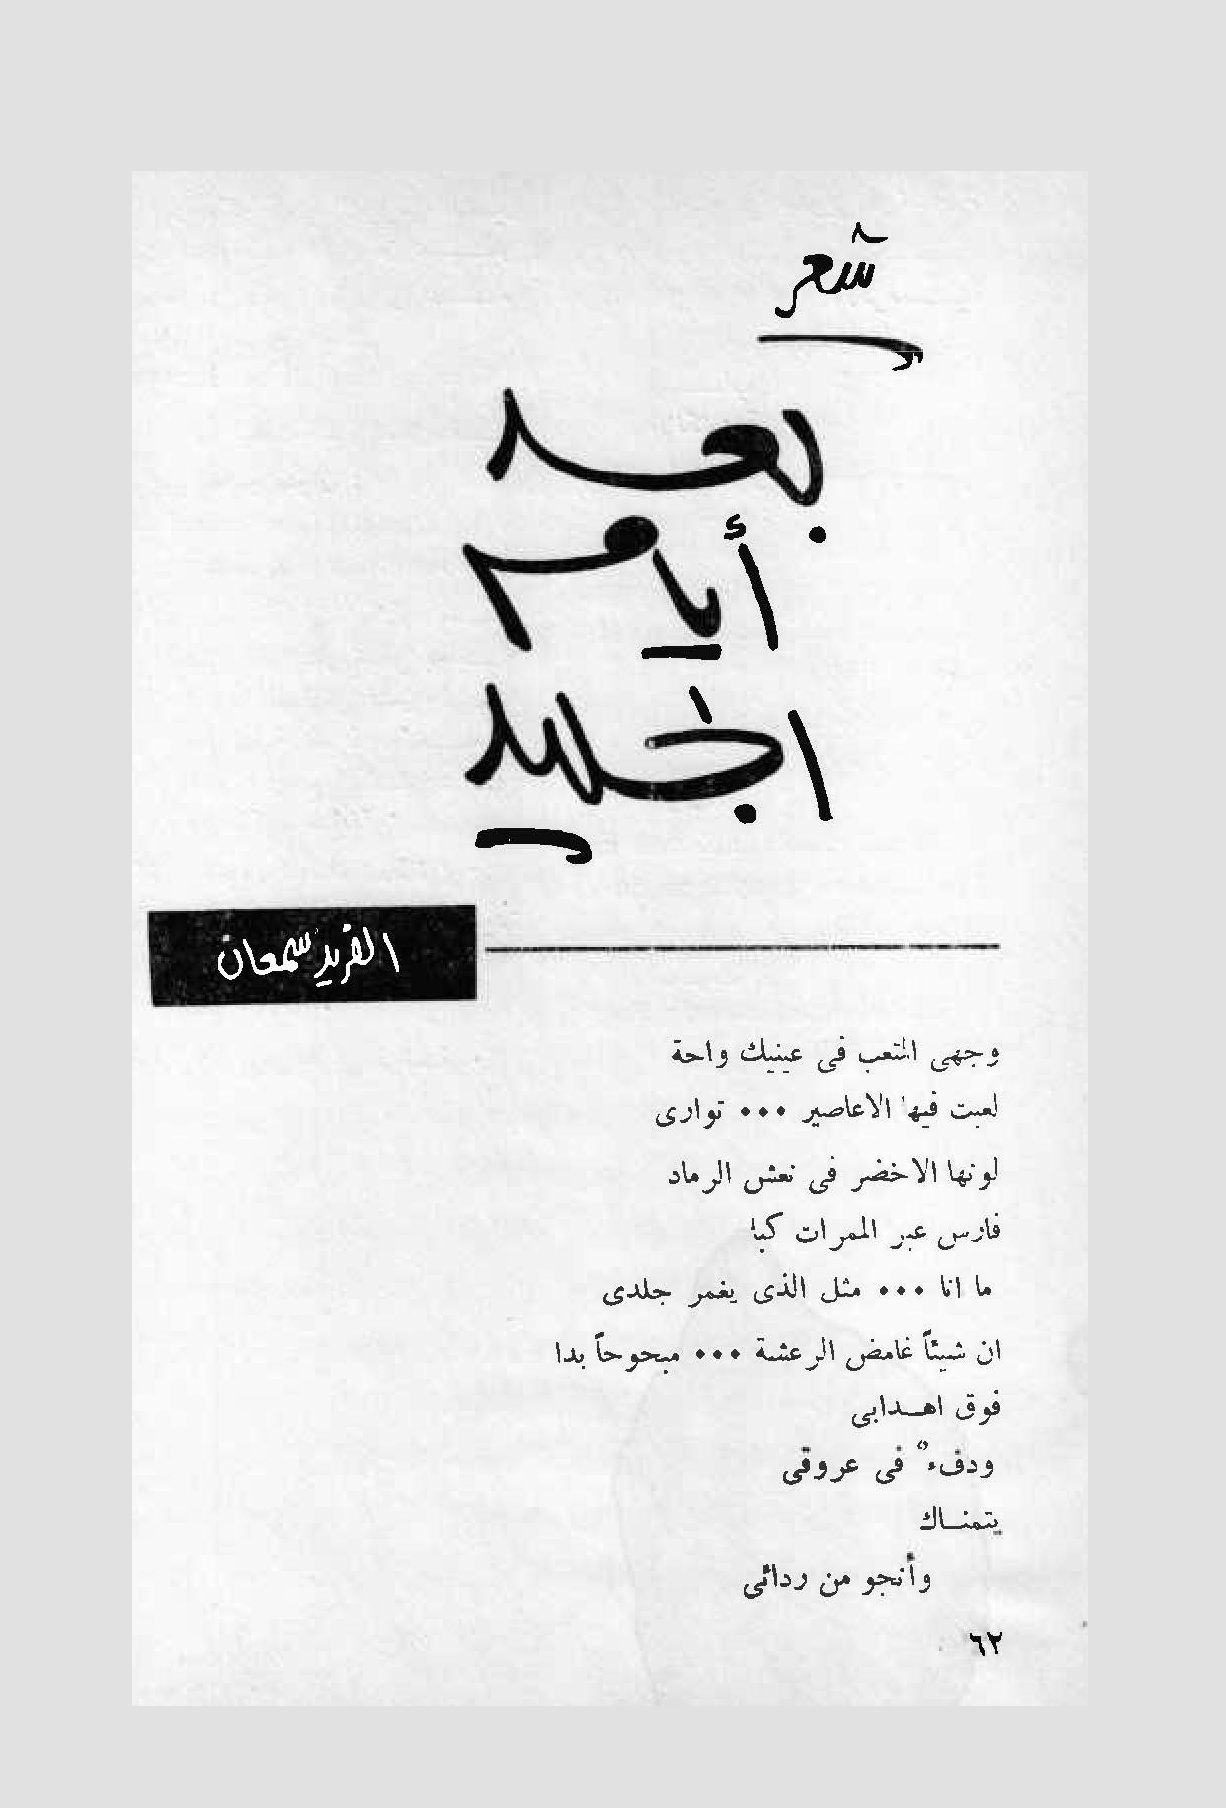 شعر
بعد
أيام
الجليد
الفريد سمعان
وجهى المتعب فى عينيك واحة
لعبت فيها الاعاصير ••• توارى
لونها الاخضر فى نعش الرماد
فارس عبر الممرات كبا
ما انا ••• مثل الذى يغمر جلدى
ان شيئاً غامض الرعشة ••• مبحوحاً بدا
فوق اهــدابى
ودفءٌ فى عروقى
يتمنــاك
وأنجو من ردائى
٦٢